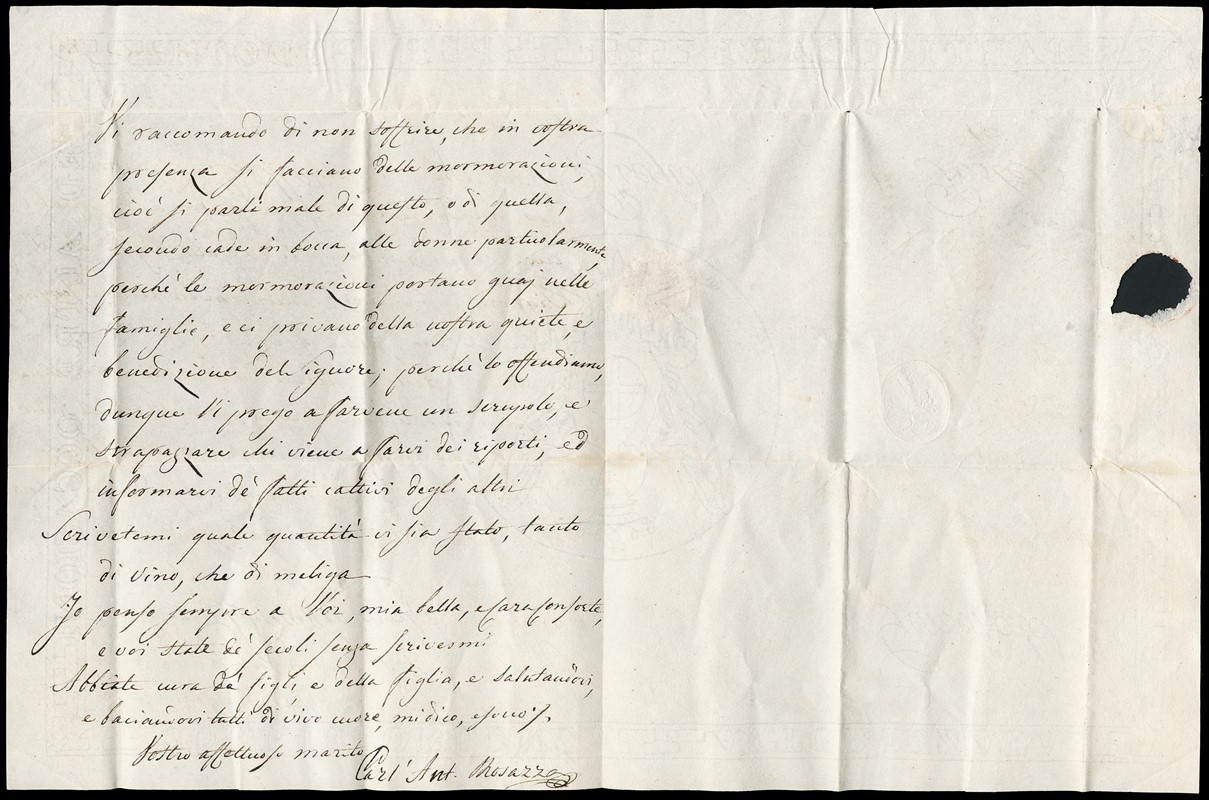 Vi raccomando di non soffrire, che in vostra
presenza si facciano delle mormorazioni,
cioè si parli male di questo, o di quella,
secondo cade in bocca, alle donne particolarmente,
perchè le mormorazioni portano guaj nelle
famiglie, e ci privano della nostra quiete, e
benedizione del Signore; perchè lo offendiamo,
dunque Vi prego a farvene un scrupolo, e
strapazzare chi viene a farvi dei riporti, ed
informarvi de' fatti cattivi degli altri
Scrivetemi quale quantità vi sia stato, tanto
di vino, che di meliga
Jo penso sempre a Voi, mia bella, e cara Consorte,
e voi state de' secoli senza scrivermi
Abbiate cura de' figli, e della figlia, e salutandovi,
e baciandovi tutti di vivo cuore, mi dico, e sono
Vostro affettuoso marito
Carl' Ant. Rosazza